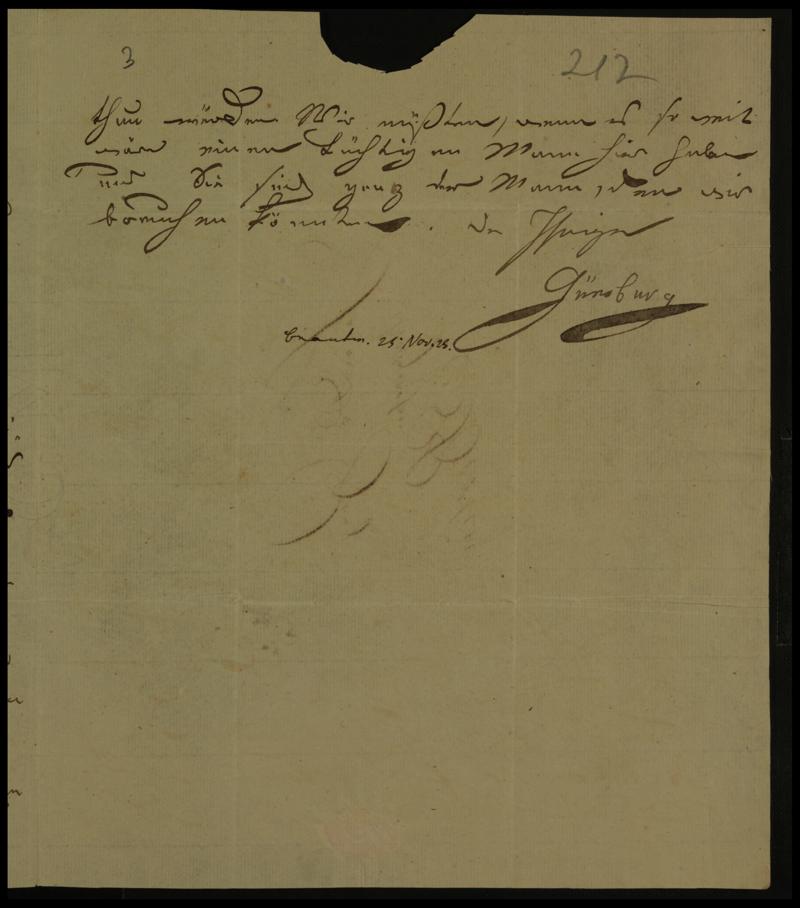 3
212
thun würden Wir müßten, wenn es so weit
wäre einen Tüchtigen Mann hier haben
und Sie sind ganz der Mann, den wir
brauchen könnten. Der Ihrige
Günsburg
beantw. 25 Nov. 25.